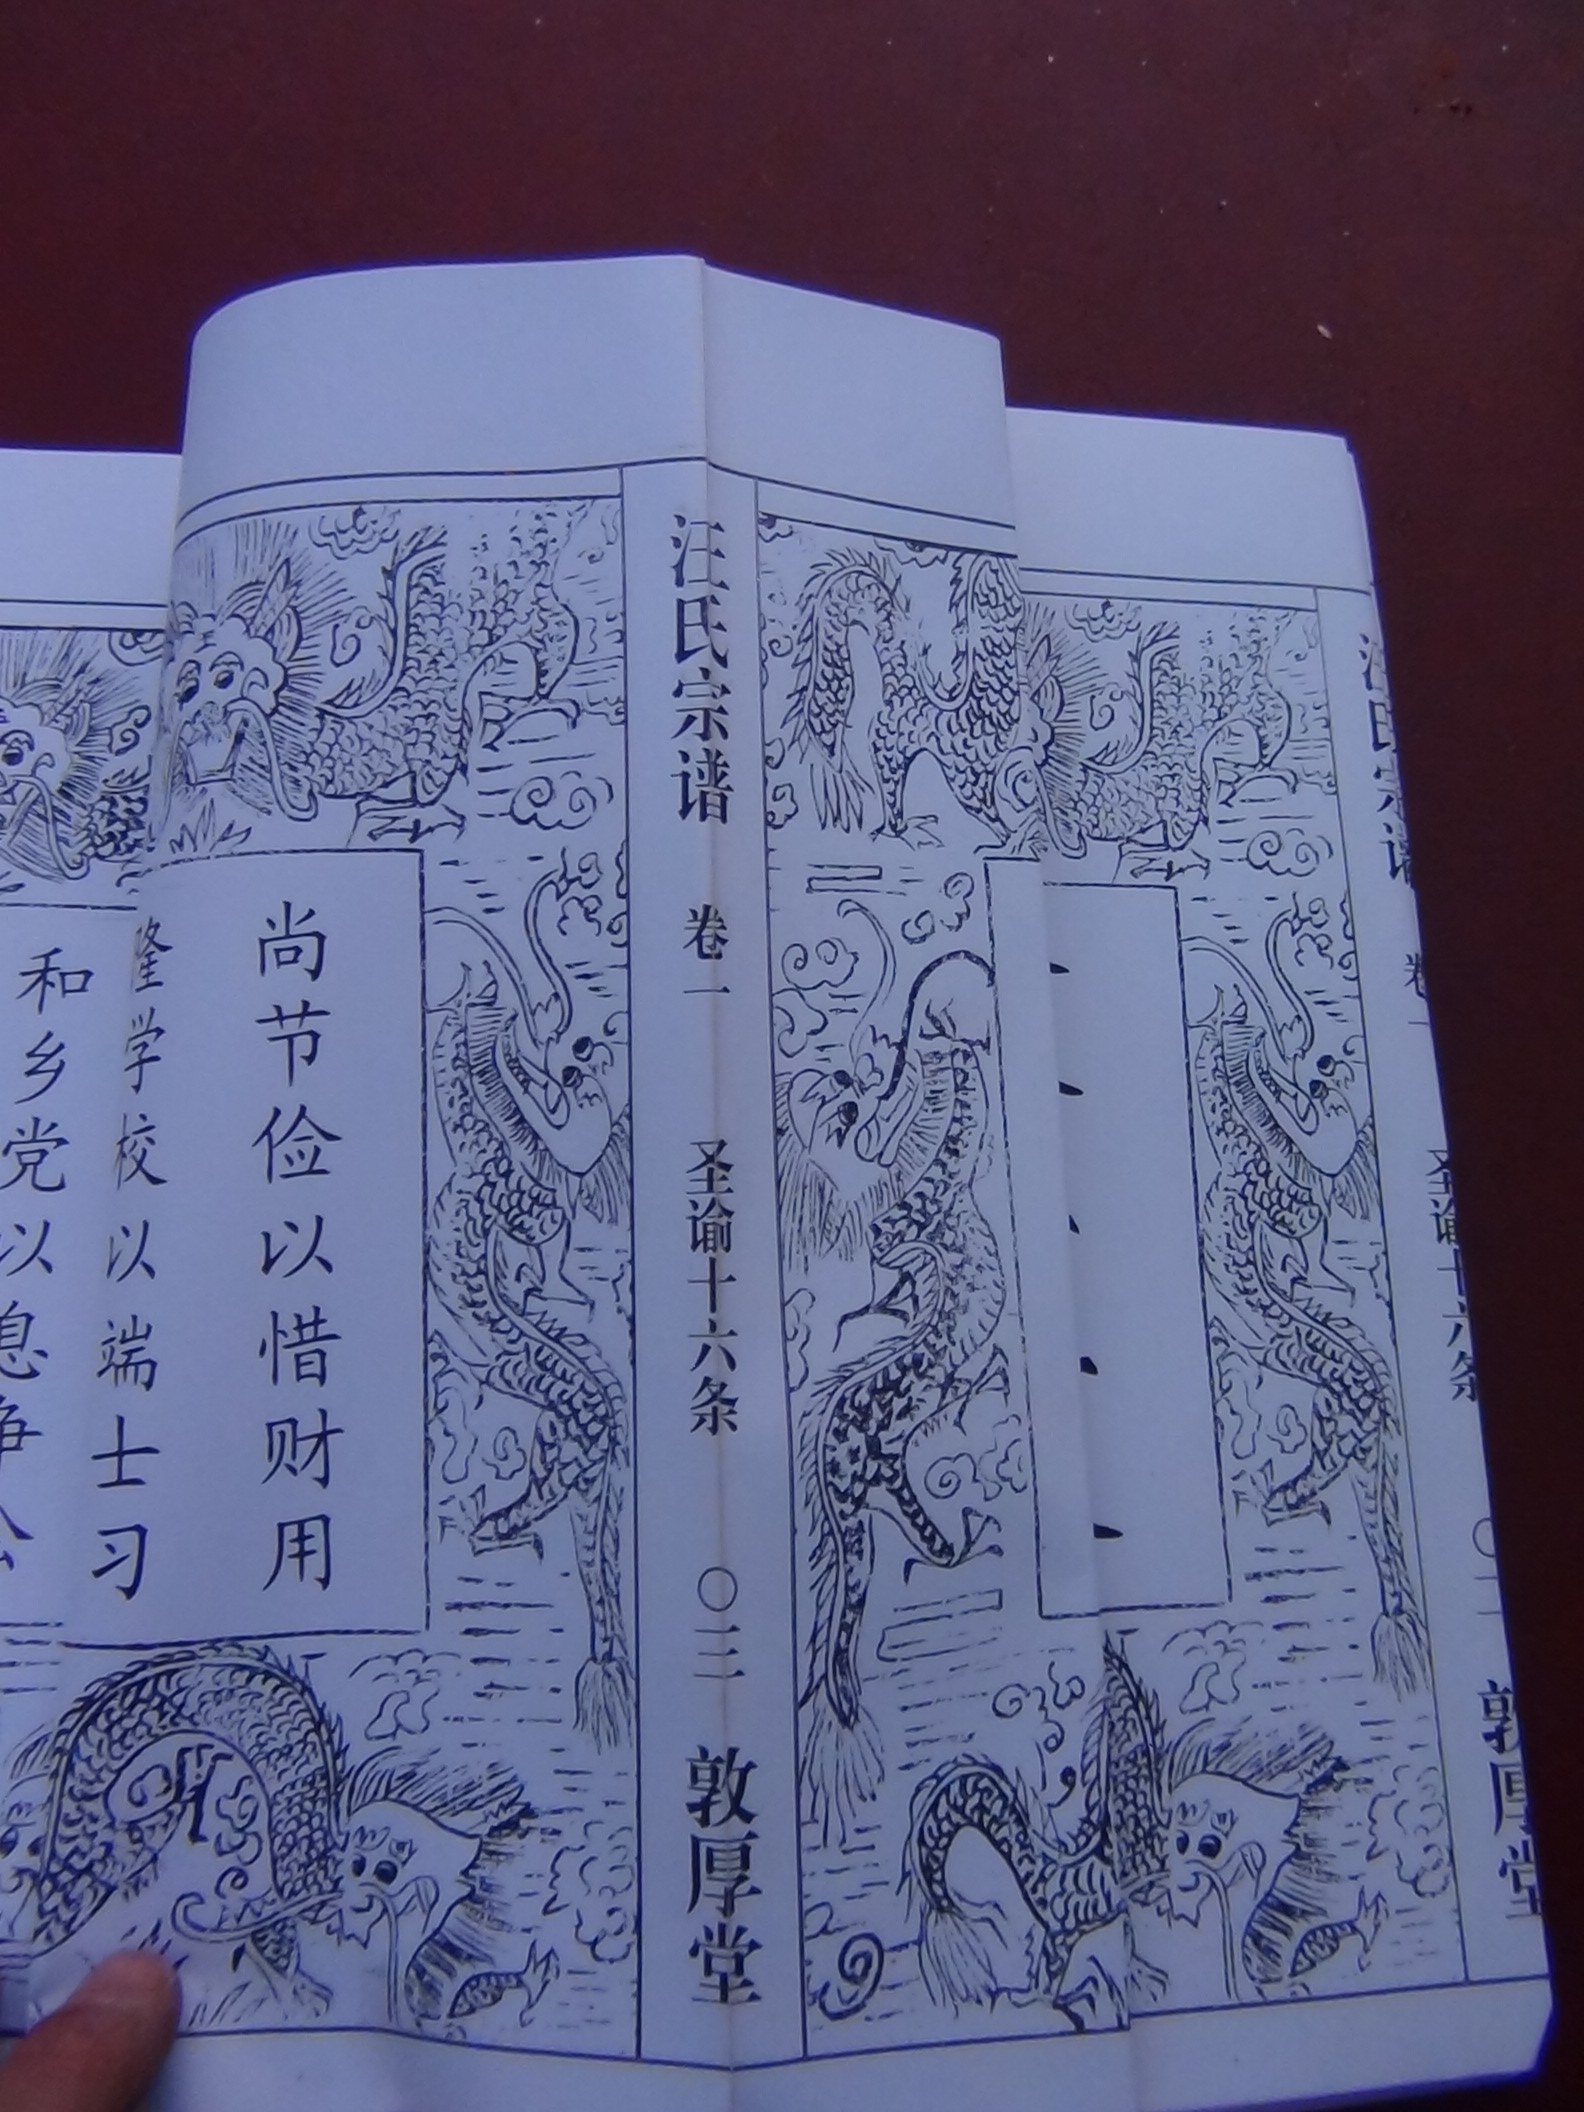 汪氏宗谱 卷一 圣谕十六条 〇二 敦厚堂
汪氏宗谱 卷一 圣谕十六条 〇三 敦厚堂
尚节俭以惜财用
隆学校以端士习
和乡党以息争